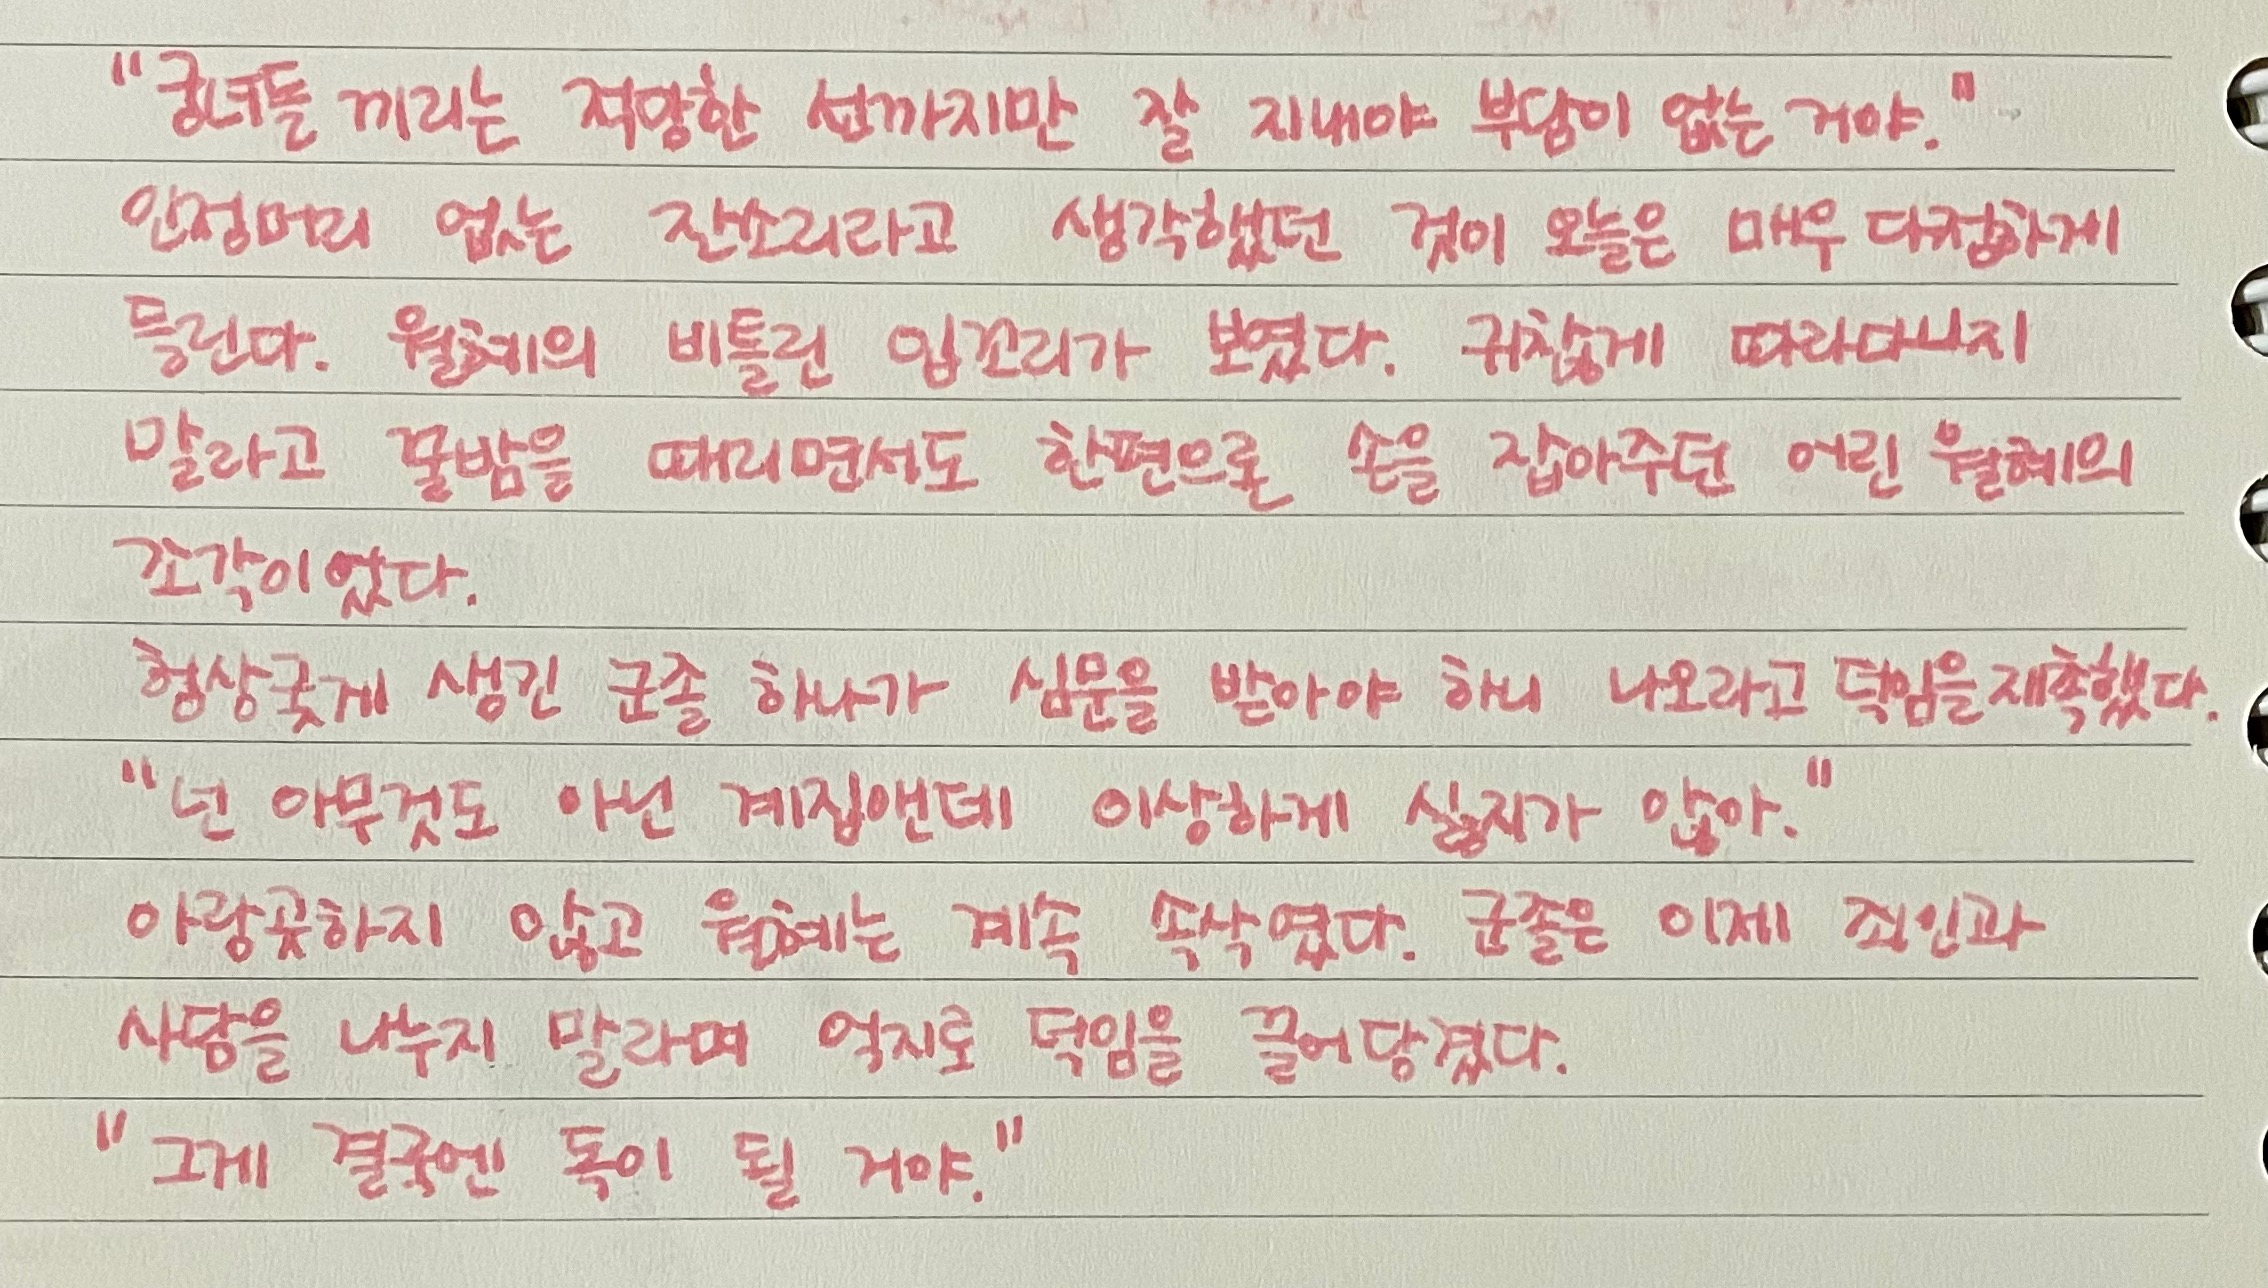 "궁녀들 끼리는 적당한 선까지만 잘 지내야 부담이 없는 거야."
인정머리 없는 잔소리라고 생각했던 것이 오늘은 매우 다정하게
들린다. 월혜의 비틀린 입꼬리가 보였다. 귀찮게 따라다니지
말라고 꿀밤을 때리면서도 한편으론 손을 잡아주던 어린 월혜의
조각이었다.
험상궂게 생긴 군졸 하나가 심문을 받아야 하니 나오라고 덕임을 재촉했다.
"넌 아무것도 아닌 계집앤데 이상하게 싫지가 않아."
아랑곳하지 않고 월혜는 계속 속삭였다. 군졸은 이제 죄인과
사담을 나누지 말라며 억지로 덕임을 끌어당겼다.
"그게 결국엔 독이 될 거야."